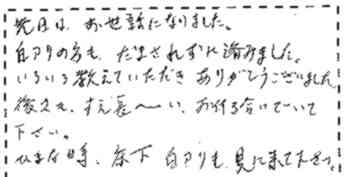 先日は、お世話になりました。
白アリの方も、だまされずに済みました。
いろいろ教えていただきありがとうございました
後々も、すえ長〜い、お付き合いでいて
下さい。
ひまな時、床下 白アリも、見に来て下さい。